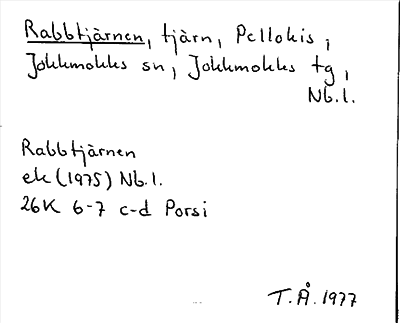 Rabbtjärnen, tjärn, Pellokis,
Jokkmokks sn, Jokkmokks tg,
Nb.l.
Rabbtjärnen
ek (1975) Nb.l.
26K 6-7 c-d Porsi
T.Å. 1977